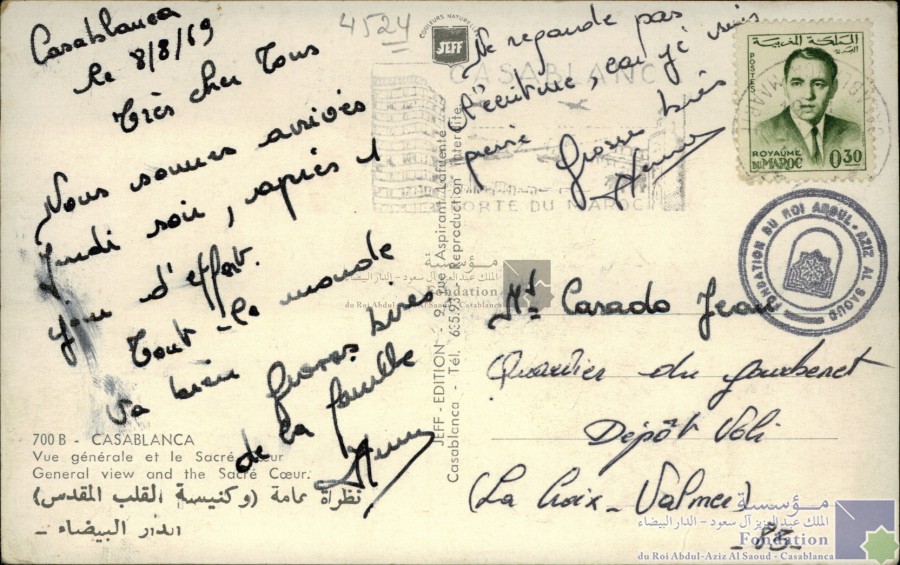 Casablanca
le 8/8/69
Très cher Tous
Nous sommes arrivés
Jeudi soir, après 1
jour d'effort.
Tout le monde
va bien
Grosses bises
de la famille
4524
COULEURS NATURELLES
JEFF
Ne regarde pas
l'écriture, car j'écris
Grosses bises
CASABLANCA
PORTE DU MAROC
المملكة المغربية
POSTES
ROYAUME
DU MAROC
0,30
FONDATION DU ROI ABDUL-AZIZ AL SAOUD
JEFF - EDITION - 9, rue Aspirant Lafuente
Casablanca - Tél. 685.93 - Reproduction interdite
مؤسسة
الملك عبد العزيز آل سعود - الدار البيضاء
Fondation
du Roi Abdul-Aziz Al Saoud - Casablanca
Mr Casado Jean
Quartier du
Dépôt Voli
(La Croix-Valmer)
- 83 -
700 B - CASABLANCA
Vue générale et le Sacré Cœur
General view and the Sacré Cœur.
نظرة عامة (وكنيسة القلب المقدس)
الدار البيضاء -
مؤسسة
الملك عبد العزيز آل سعود - الدار البيضاء
Fondation
du Roi Abdul-Aziz Al Saoud - Casablanca